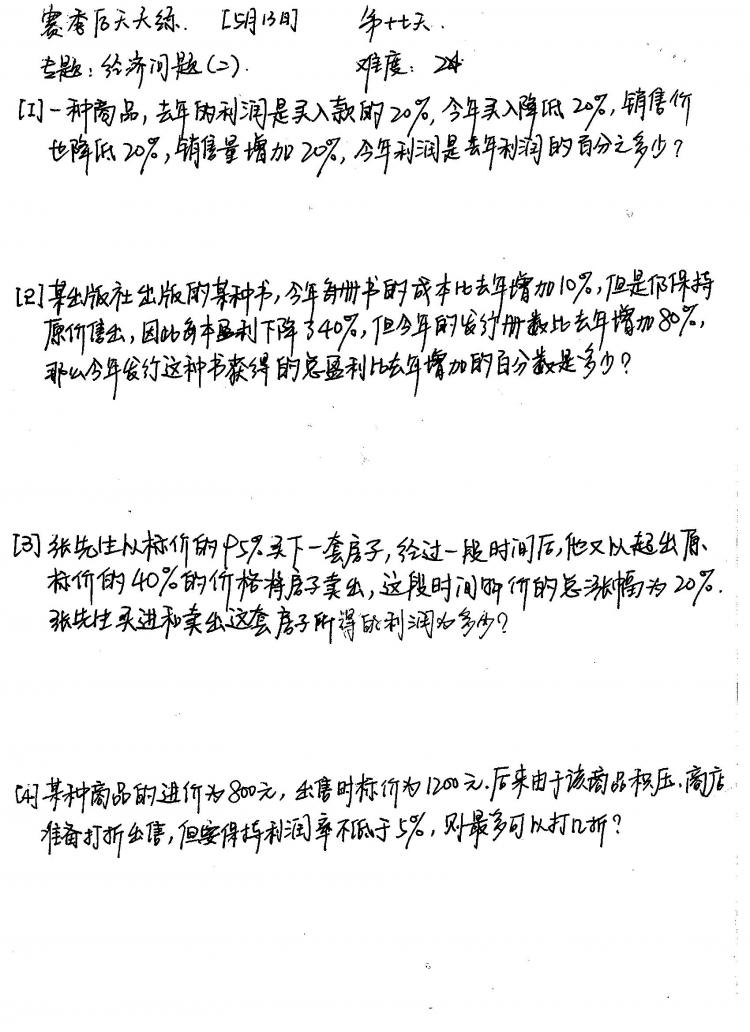 赛季后天天练. [5月13日] 第十七天.
专题:经济问题(二). 难度: 2
[1]一种商品,去年的利润是买入款的20%,今年买入降低20%,销售价
也降低20%,销售量增加20%,今年利润是去年利润的百分之多少?
[2]某出版社出版的某种书,今年每册书的成本比去年增加10%,但是仍保持
原价售出,因此每本盈利下降了40%,但今年的发行册数比去年增加80%,
那么今年发行这种书获得的总盈利比去年增加的百分数是多少?
[3]张先生以标价的95%买下一套房子,经过一段时间后,他又以超出原
标价的40%的价格将房子卖出,这段时间物价的总涨幅为20%.
张先生买进和卖出这套房子所得的利润为多少?
[4]某种商品的进价为800元,出售时标价为1200元.后来由于该商品积压,商店
准备打折出售,但要保持利润率不低于5%,则最多可以打几折?